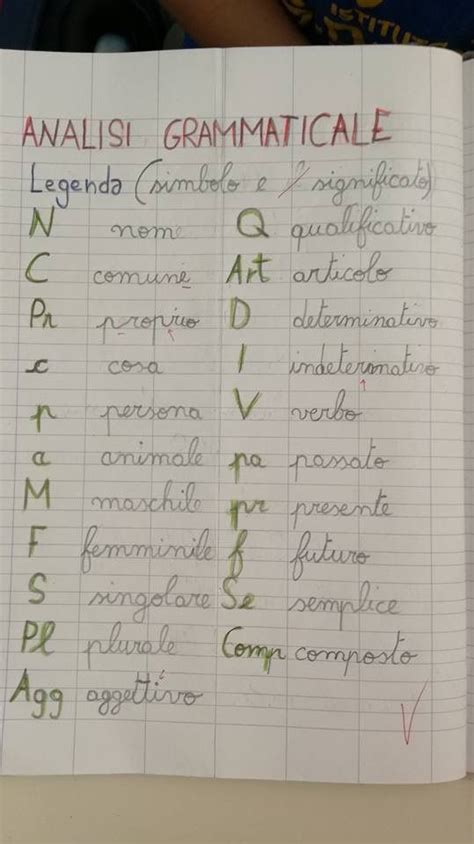 ISTITUTO
ANALISI GRAMMATICALE
Legenda (simbolo e significato)
N nome Q qualificativo
C comune Art articolo
Pr proprio D determinativo
c cosa I indeterminativo
p persona V verbo
a animale pa passato
M maschile pr presente
F femminile f futuro
S singolare Se semplice
Pl plurale Comp composto
Agg aggettivo